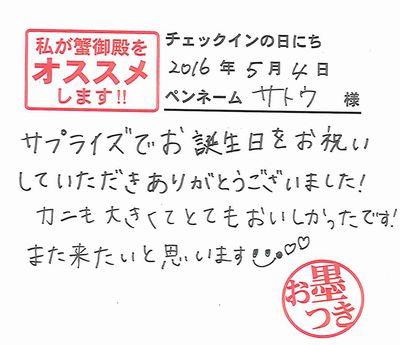 私が蟹御殿を
オススメ
します!!
チェックインの日にち
2016年5月4日
ペンネーム サトウ 様
サプライズでお誕生日をお祝い
していただきありがとうございました!
カニも大きくてとてもおいしかったです!
また来たいと思います
お墨つき